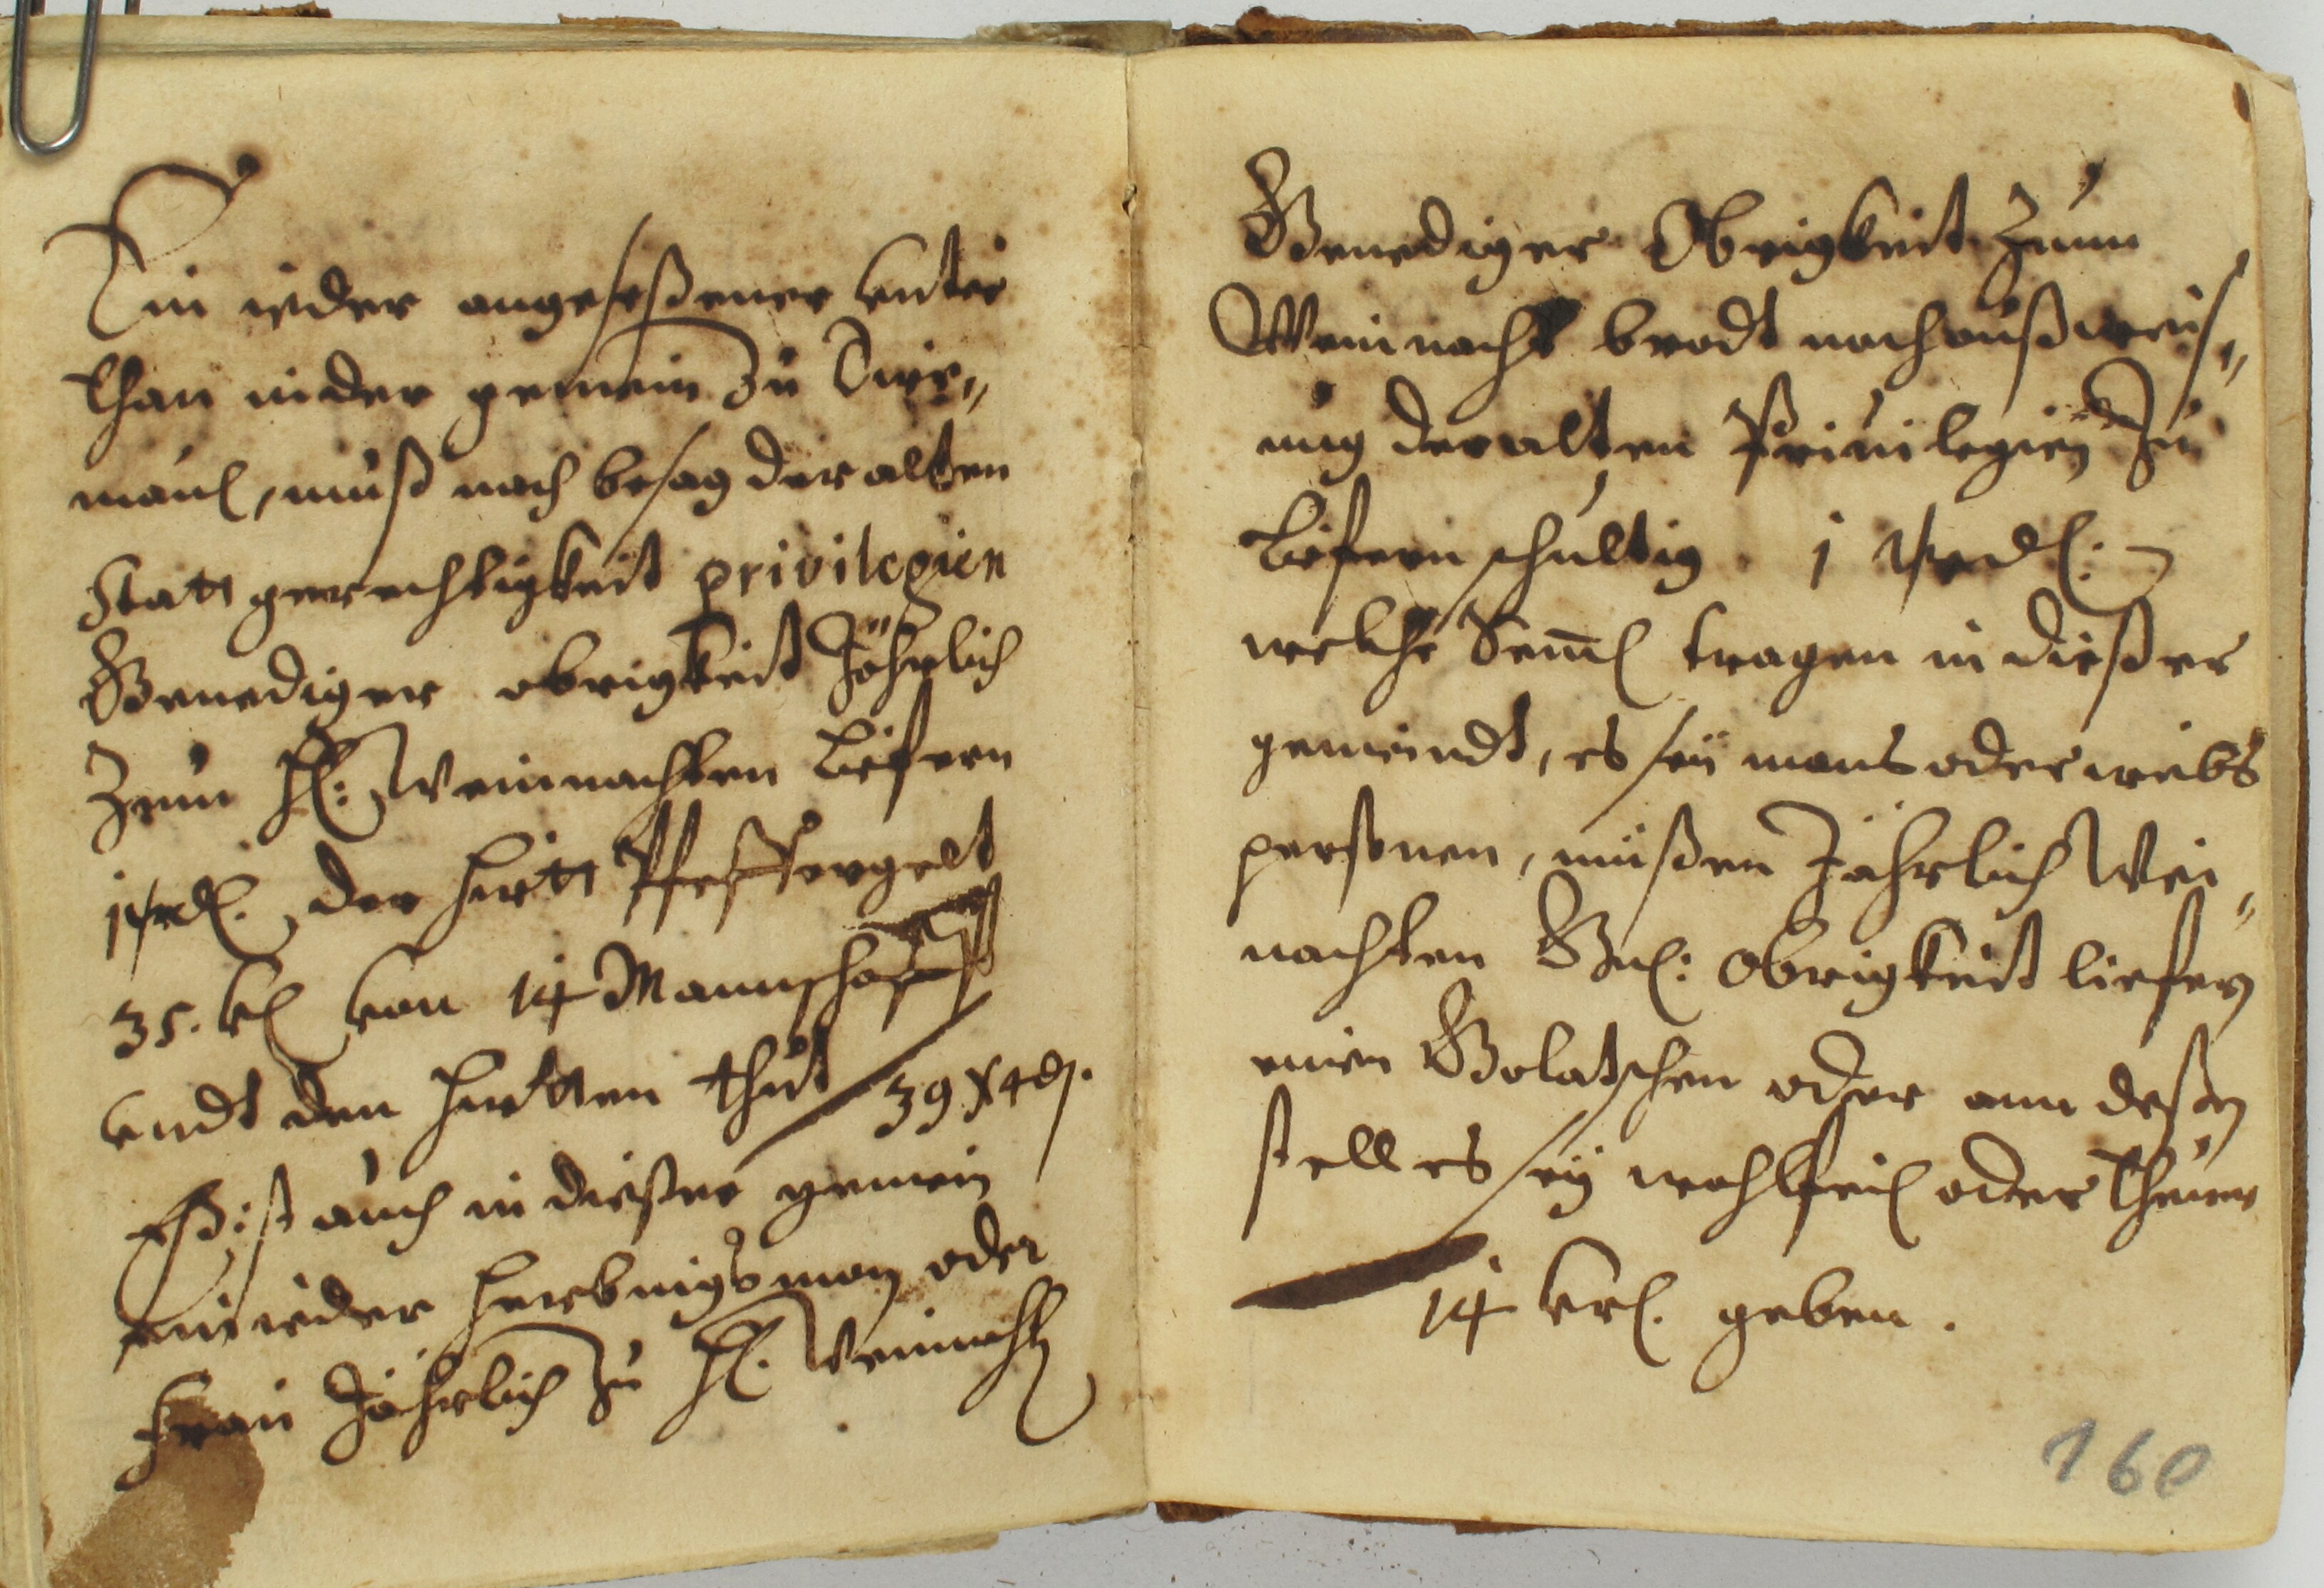 Ein ieder angeseßener unter
than in der gemein zu Dir„
maul, muß nach besag der alten
Statt gerechtigkeit privilegien
Genediger obrigkeit Jährlich
Zum Hl: Weinnachten Liefern
der Hirtt Pfeffergelt
35. kl von 14 Mannschafft
undt den Hirtten thut 39 x 4 ₰.
Eß ist auch in dießer gemein
ein ieder Herbrigsman oder
Frau Jährlich zu Hl. Weinnachten
Genediger Obrigkeit Zum
Weinnacht brodt nach außweiß„
ung der alten Privilegien Zu
Liefern schultig. 1
welche Seml tragen in dießer
gemeindt, es seÿ mans oder weibs
personen, müßen Jährlich Wei„
nachten Gnl: Obrigkeit liefern
einen Golatschen oder ann deßen
stell es seÿ wohlfeil oder Theuer
14 krl. geben.
160